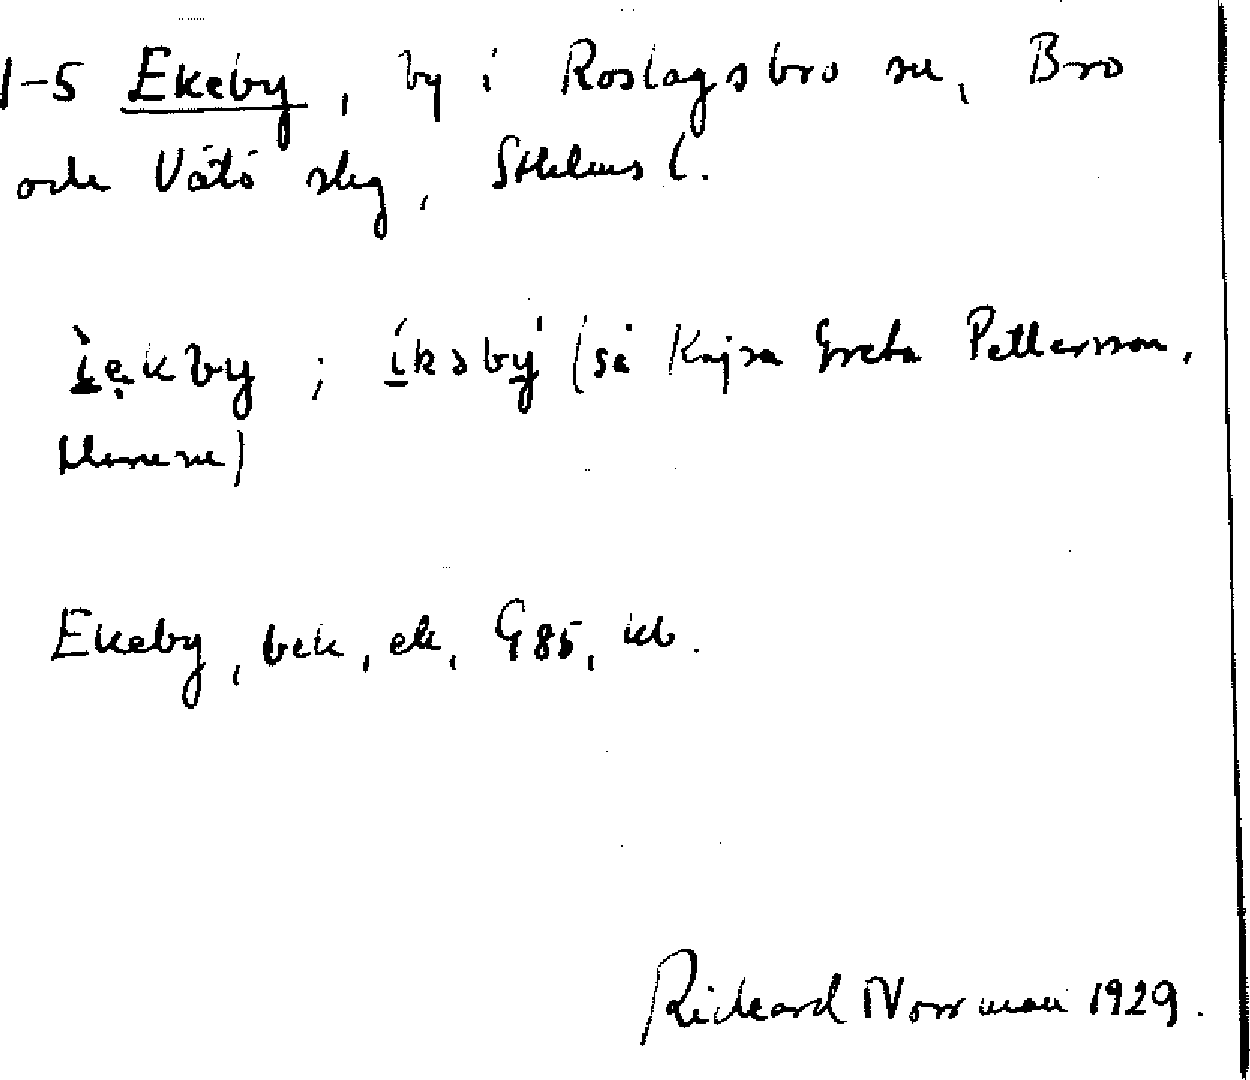 1-5 Ekeby, by i Roslagsbro sn, Bro
och Vätö skg, Sthlms l.
ìẹkby; íksby̍ (så Kajsa Greta Pettersson,
Ekeby, bek, ek, G85, kb.
Rickard Norrman 1929.